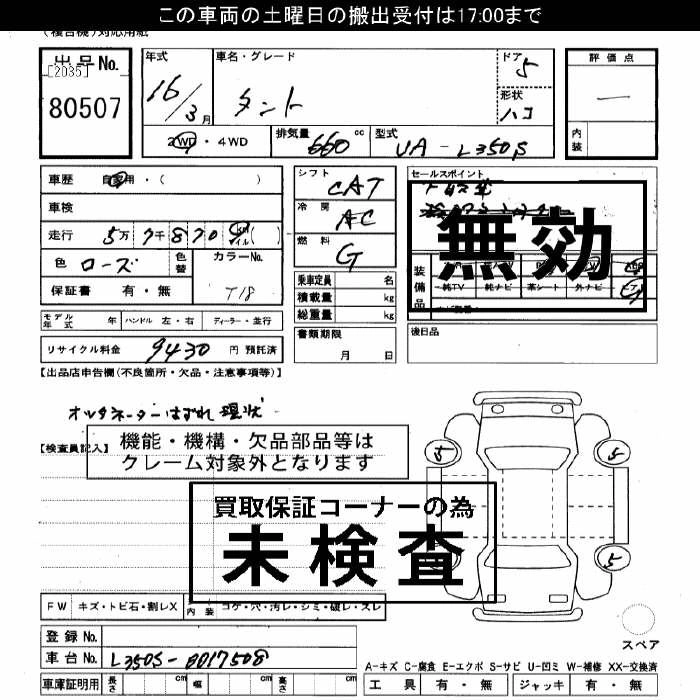 この車両の土曜日の搬出受付は17:00まで
(複合機)対応用紙
出品No.
[2035]
80507
年式
16/3月
車名・グレード
タント
ドア
5
形状
ハコ
評価点
―
内装
2WD・4WD
排気量 660 cc
型式 UA-L350S
車歴 自家用・( )
車検
走行 5万7千870
色 ローズ
色替
カラーNo.
T18
保証書 有・無
シフト CAT
冷房 AC
燃料 G
乗車定員 名
積載量 kg
総重量 kg
セールスポイント
無効
装備品
純TV 純ナビ 革シート 外ナビ
モデル年式 年 ハンドル 左・右 ディーラー・並行
書類期限
月 日
後日品
リサイクル料金 9430 円 預託済
【出品店申告欄(不良箇所・欠品・注意事項等)】
オルタネーターはずれ 現状
【検査員記入】
機能・機構・欠品部品等は
クレーム対象外となります
買取保証コーナーの為
未検査
5 5
5
FW キズ・トビ石・割レX 内装 コゲ・穴・汚レ・シミ・破レ・スレ
スペア
登録No.
車台No. L350S-0017508
A-キズ C-腐食 E-エクボ S-サビ U-凹ミ W-補修 XX-交換済
車庫証明用 長さ cm 幅 cm 高さ cm
工具 有・無 ジャッキ 有・無